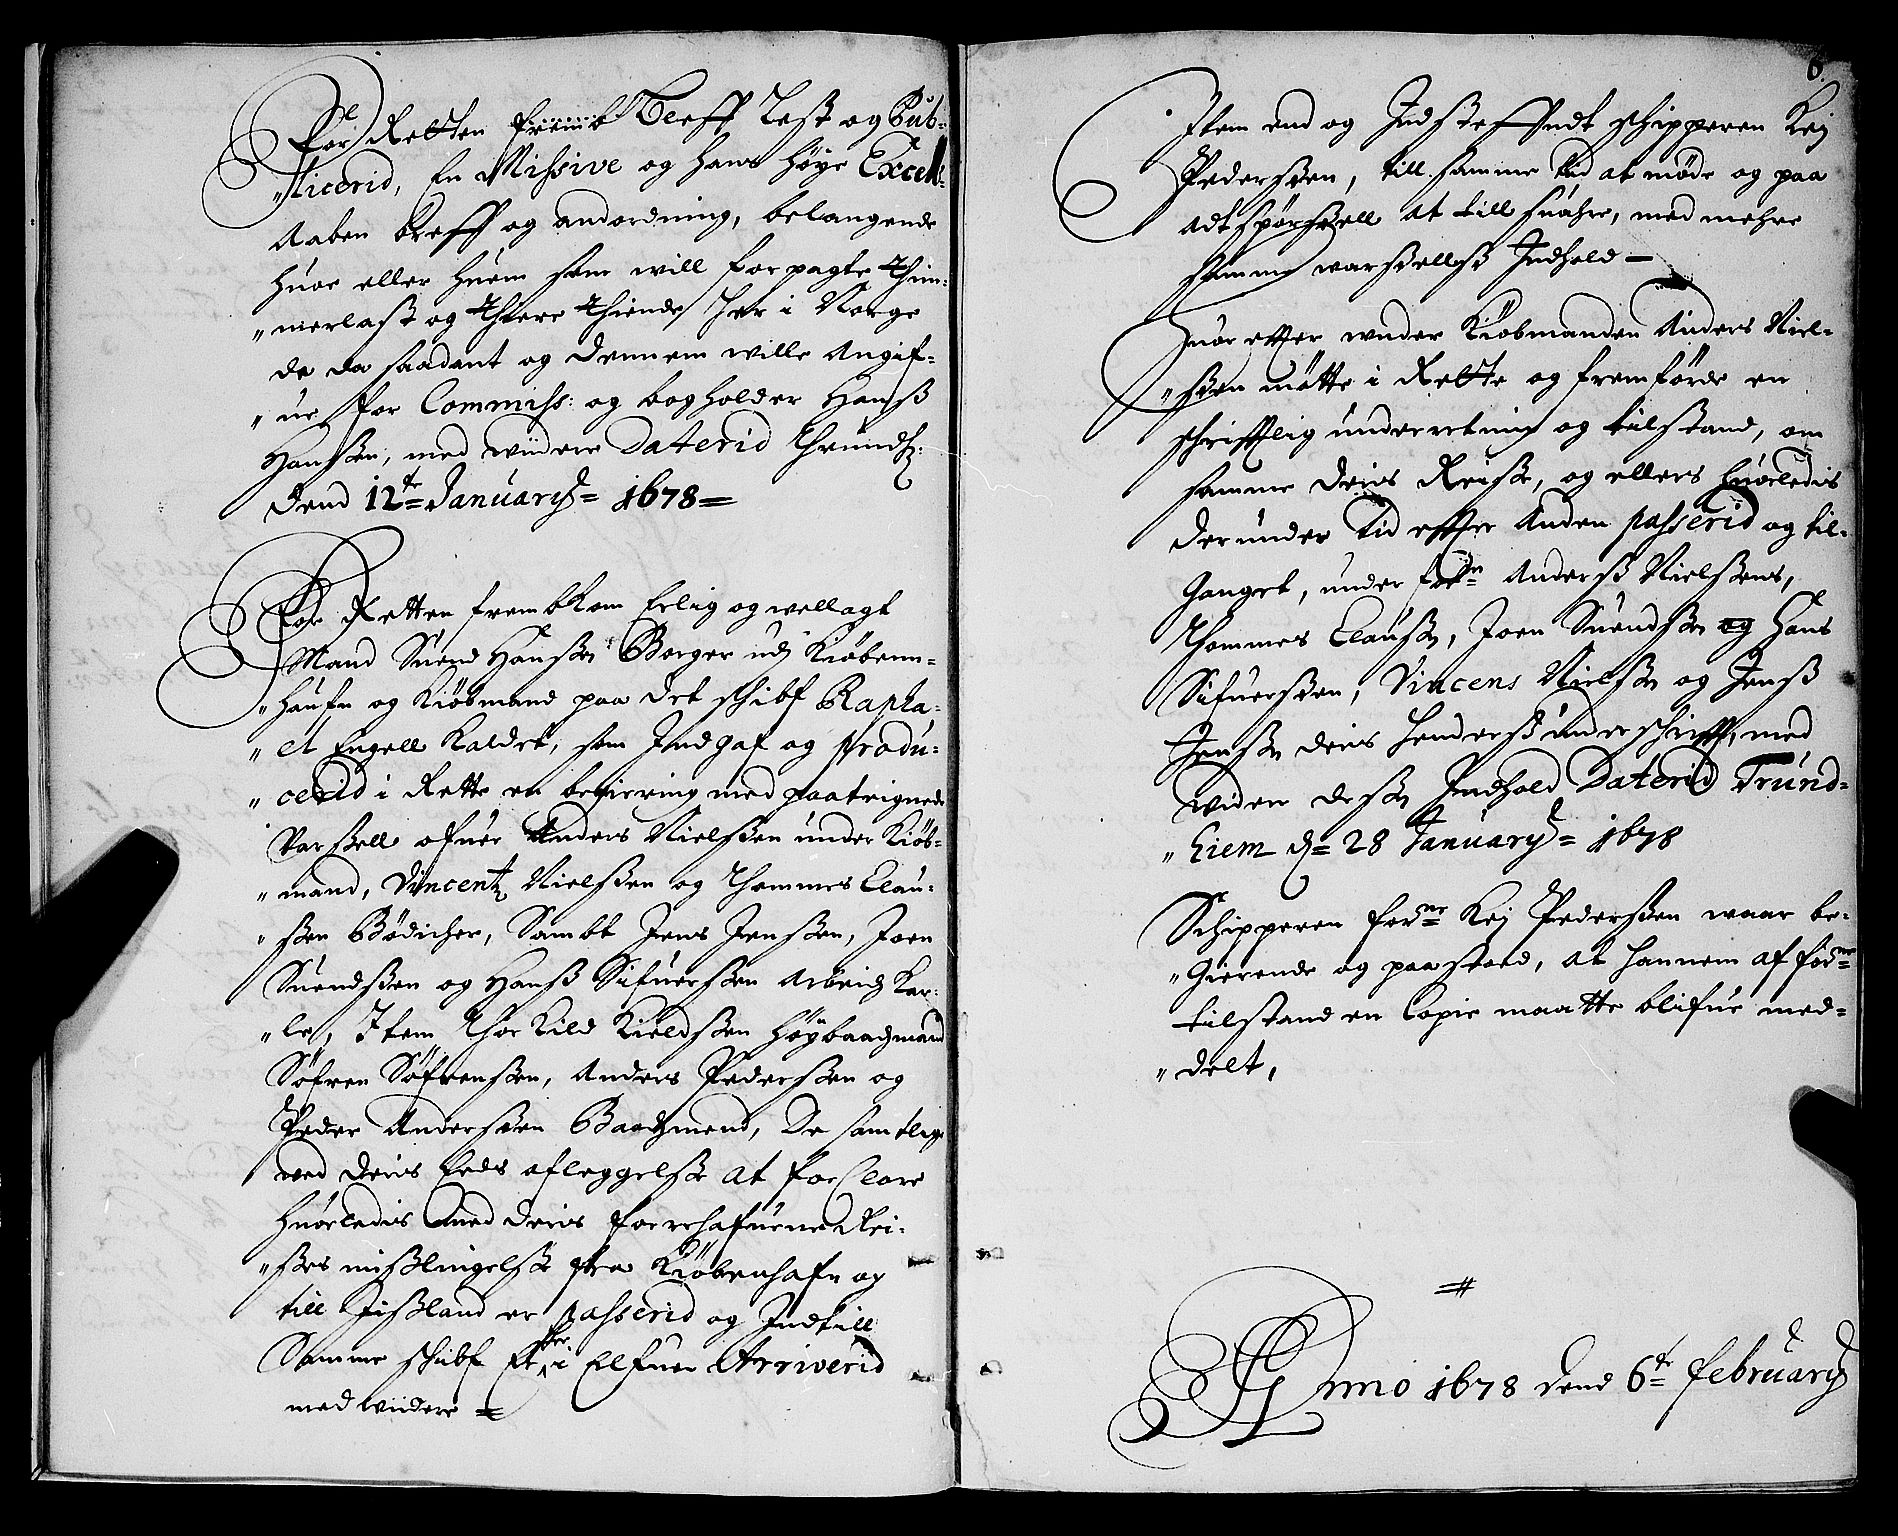 For Retten fremb bleff Lest og Pub-
"licerid, En Missive og hans høye Excell:
Aaben breff og andordning, belangende
huor eller huem som will forpagte Thim-
"merlast og Thiere Thiende her i Norge
de da saadant og dennem wille Angif-
"ue for Commiss: og bogholder Hanß
Hanßen, med widere Daterid Thrundh:
Dend 12te January 1678
For Retten frembkom Erlig og wellagt
Mand Suend Hanßen Borger udj Kiøbenn-
"haufn og Kiøbmand paa det schibf Rapha-
"el Engell Kaldet, som Indgaf og produ-
"cerid i Rette en begiering med paateignede
Varßell ofuer Anders Nielßen under Kiøb-
"mand, Vincentz Nielßen og Thommes Clau-
"ßen Bødicher, Sambt Jens Jenßen, Joen
Suendßen og Hanß Sifuerßen Arbeidz Kar-
"le, Item Thorkild Kieldßen Høybaadzmand
Søfren Søfrenßen, Anders Pederßen og
Peder Anderßen Baadzmend, De samtlige
ved deris Eeds afleggelse at forclare
huorledis med deris forrehafuene Rei-
"ßes mißlingelße fra Kiøbenhafn og
till Jißland er passerid og Indtill
Samme schibf her i Elfuen Arriverid
med widere
6.
Item end og Indsteffndt schipperen Kej
Pederßen, till samme tid at møde og paa
adtspørßell at till suahre, med mehre
samme warßellß Indhold
Huor effter under Kiøbmanden Anders Niel-
"ßen møtte i Rette og fremførde en
schrifftlig underretning og tilstand, om
samme deris Reise, og ellers huorledis
derunder tid effter Anden passerid og til-
Ganget, under forn Anderß Nielßens,
Thommes Clausen, Joen Suendßen og Hans
Sifuerßen, Vincens Nielßen og Jenß
Jenßen deris henderß underschrifft, med
widere deßen Indhold Daterid Trund-
"hiem d 28 January 1678
Schipperen forne Kej Pederßen waar be-
"Gierende og paastoed, at hannem af fordne
tilstand en Copie maatte blifue med-
"delt,
Anno 1678 dend 6te february